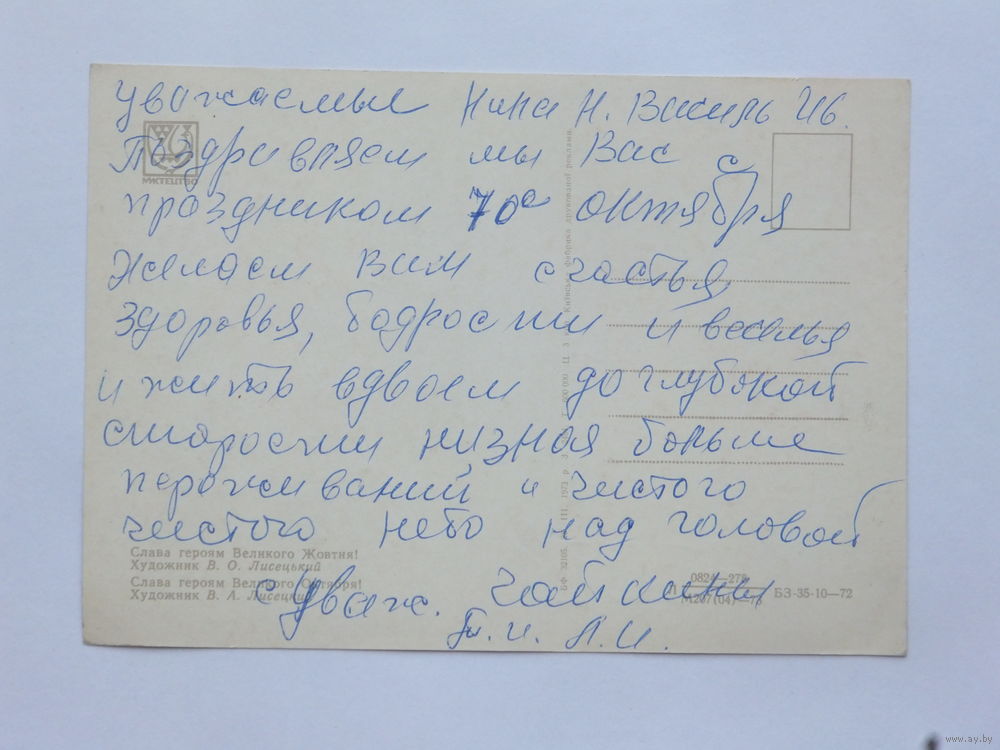 уважаемые Нина Н. Василь Ив.
Поздравляем мы Вас с
праздником 70е октября
желаем вам счастья
здоровья, бодрости и веселья
и жить вдвоем до глубокой
старости низная больше
переживаний и чистого
чистого небо над головой
с уваж.
П.И. Л.И.
МИСТЕЦТВО
Слава героям Великого Жовтня!
Художник В. О. Лисецький
Слава героям Великого Октября!
Художник В. А. Лисецкий
0824—272
М207(04)—73
БЗ-35-10—72
Київська фабрика друкованої реклами.
БФ 32105. III. 1973 р.
www.ay.by